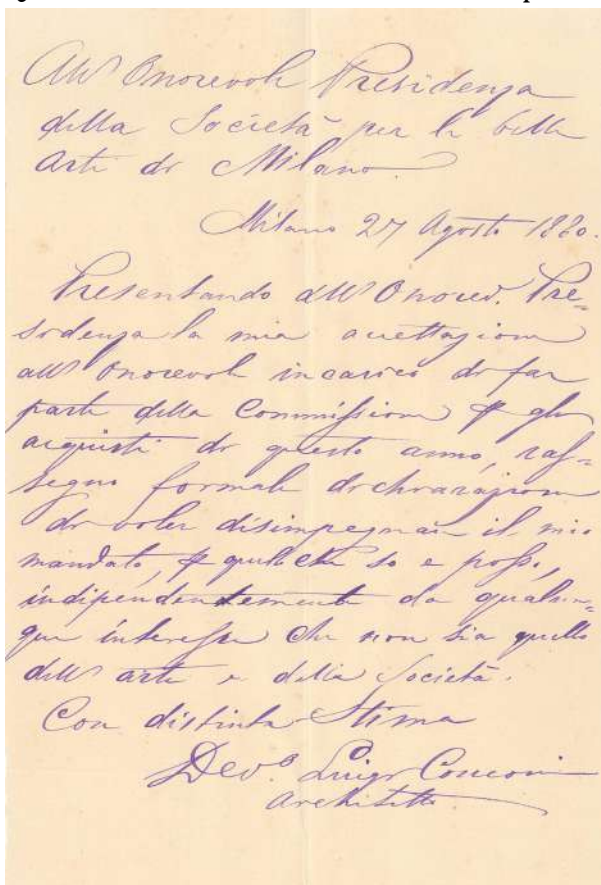 All' Onorevole Presidenza
della Società per le belle
Arti di Milano.
Milano 27 Agosto 1880.
Presentando all' Onorev. Pre=
sidenza la mia accettazione
all' Onorevole incarico di far
parte della Commissione p gli
acquisti di questo anno, ras=
segno formale dichiarazione
di voler disimpegnare il mio
mandato, p quello che so e posso,
indipendentemente da qualun=
que interesse che non sia quello
dell' arte e della Società.
Con distinta Stima
Dev.º Luigi Conconi
Architetto